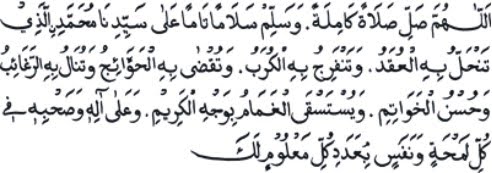 اَللّٰهُمَّ صَلِّ صَلَاةً كَامِلَةً . وَسَلِّمْ سَلَامًا تَامًّا عَلَى سَيِّدِنَا مُحَمَّدِ ࣙالَّذِيْ
تَنْحَلُّ بِهِ الْعُقَدُ . وَتَنْفَرِجُ بِهِ الْكُرَبُ . وَتُقْضَى بِهِ الْحَوَائِجُ وَتُنَالُ بِهِ الرَّغَائِبُ
وَحُسْنُ الْخَوَاتِمِ . وَيُسْتَسْقَى الْغَمَامُ بِوَجْهِهِ الْكَرِيْمِ . وَعَلَى آلِهِ وَصَحْبِهِ فِيْ
كُلِّ لَمْحَةٍ وَنَفَسٍ بِعَدَدِ كُلِّ مَعْلُوْمٍ لَكَ